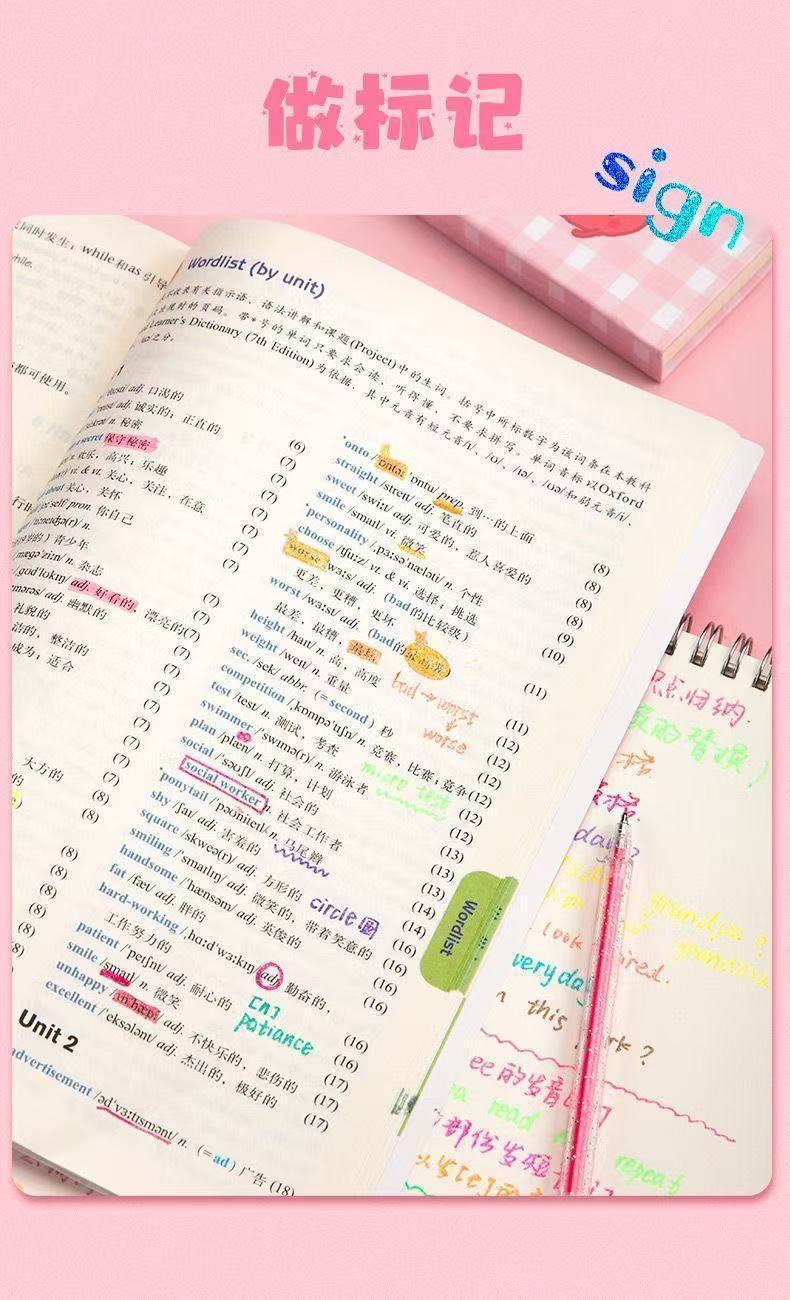 做标记
sign
同时发生；while和as引导
while.
都可使用。
Wordlist (by unit)
收录有关指示语、语法讲解和课题(Project)中的生词。括号中所标数字为该词条在本教科
出现时的页码。带*号的单词只要求会读、听得懂，不要求拼写。单词音标以Oxford
Learner's Dictionary (7th Edition)为依据，其中元音有短元音/i/、/ʊ/、/ɪə/、/ʊə/和弱元音/i/、
之分。
adj. 口渴的
adj. 诚实的；正直的 (6)
n. 秘密 (7)
a secret 保守秘密 (7)
n. 欢乐，高兴；乐趣 (7)
vi. & vt. 关心，关注，在意 (7)
about 关心，关怀 (7)
pron. 你自己
n.
青少年 (7)
n. 杂志 (7)
adj. 好看的，漂亮的(7)
adj. 幽默的 (7)
礼貌的 (7)
洁的，整洁的 (7)
成为；适合 (7)
大方的 (8)
的 (8)
(8)
(8)
(8)
(8)
(8)
(8)
*onto /'ɒntə; 'ɒntu/ prep. 到…的上面
straight /streɪt/ adj. 笔直的 (8)
sweet /swiːt/ adj. 可爱的，惹人喜爱的 (8)
smile /smaɪl/ vi. 微笑 (8)
*personality /ˌpɜːsə'næləti/ n. 个性 (9)
choose /tʃuːz/ vt. & vi. 选择；挑选 (10)
worse /wɜːs/ adj. (bad的比较级)
更差，更糟，更坏 (11)
worst /wɜːst/ adj. (bad的最高级)
最差，最糟，最坏 (11)
bad → worst
worse
height /haɪt/ n. 高，高度 (12)
weight /weɪt/ n. 重量 (12)
sec. /sek/ abbr. (=second) 秒 (12)
competition /ˌkɒmpə'tɪʃn/ n. 竞赛，比赛；竞争(12)
test /test/ n. 测试，考查 (12)
micro test
swimmer /'swɪmə(r)/ n. 游泳者 (12)
plan /plæn/ n. 打算，计划 (13)
social /'səʊʃl/ adj. 社会的 (13)
social worker n. 社会工作者 (13)
*ponytail /'pəʊniteɪl/ n. 马尾辫 (14)
shy /ʃaɪ/ adj. 害羞的 (14)
square /skweə(r)/ adj. 方形的 (16)
circle 圆
smiling /'smaɪlɪŋ/ adj. 微笑的，带着笑意的 (16)
handsome /'hænsəm/ adj. 英俊的 (16)
fat /fæt/ adj. 胖的
hard-working /ˌhɑːd'wɜːkɪŋ/ adj. 勤奋的，
工作努力的 (16)
patient /'peɪʃnt/ adj. 耐心的 (16)
[n] patiance
smile /smaɪl/ n. 微笑 (17)
unhappy /ʌn'hæpi/ adj. 不快乐的，悲伤的 (17)
excellent /'eksələnt/ adj. 杰出的，极好的 (17)
Unit 2
advertisement /əd'vɜːtɪsmənt/ n. (=ad)广告 (18)
Wordlist
点归纳.
的替换)
day?
grandpa?
look
everyday
this
?
ee的发音
read
repeat
部份发短